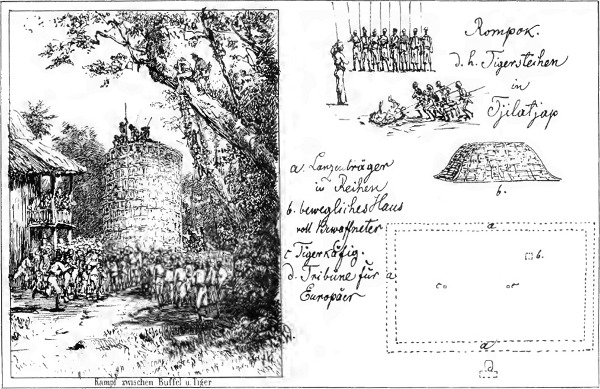 Kampf zwischen Büffel u. Tiger
Rompok.
d. h. Tigersteihen
in
Tjilatjap
a. Lanzenträger
in Reihen
b. bewegliches Haus
voll Bewaffneter
c Tigerkäfig.
d. Tribüne für
Europäer
b.
a
b.
a
c
c
a
d